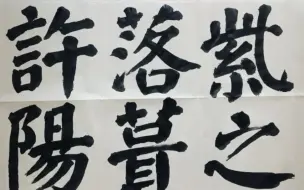 紫之
落葺
許陽